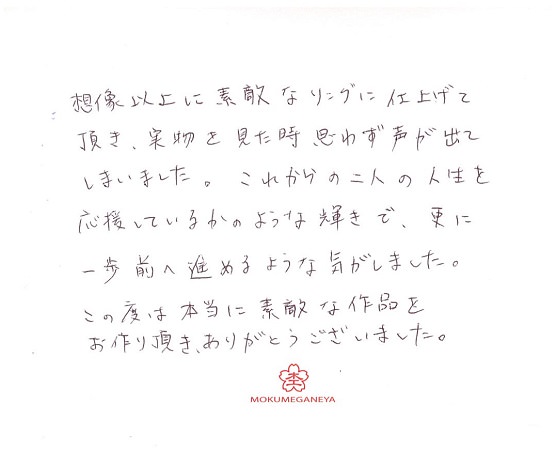 想像以上に素敵なリングに仕上げて
頂き、実物を見た時思わず声が出て
しまいました。これからの二人の人生を
応援しているかのような輝きで、更に
一歩前へ進めるような気がしました。
この度は本当に素敵な作品を
お作り頂き、ありがとうございました。
MOKUMEGANEYA